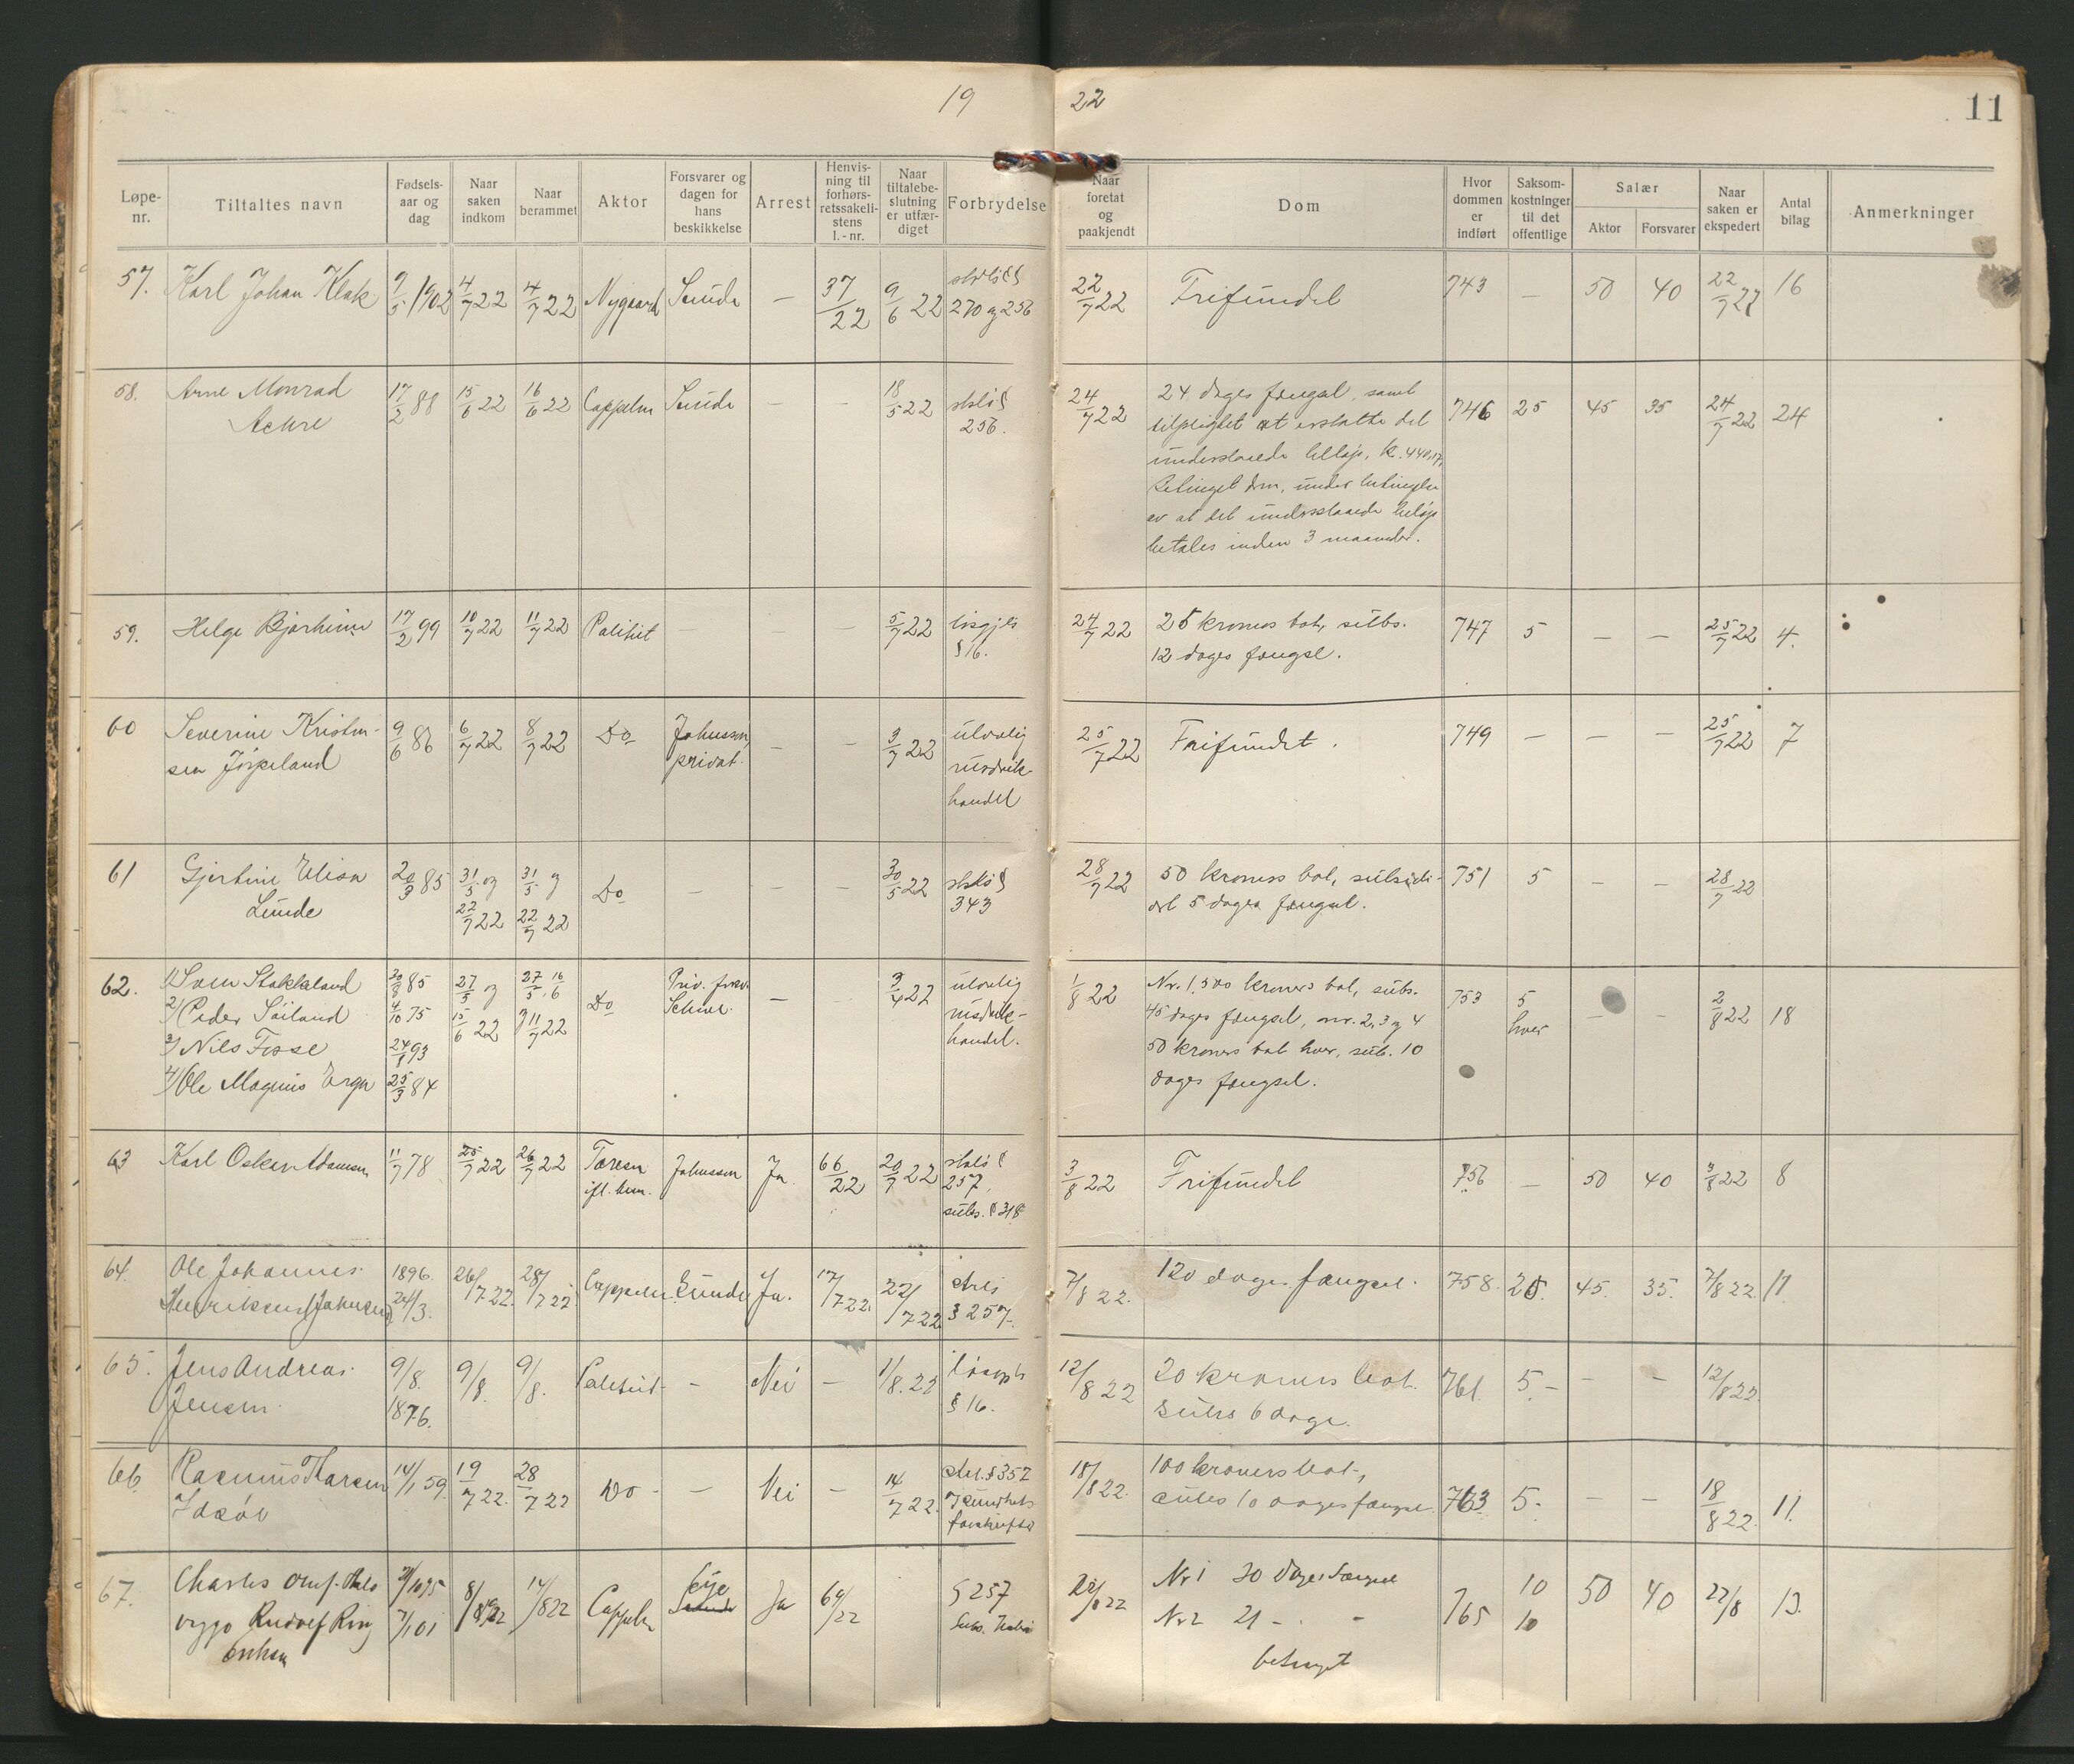 19 22
11
Løpe-nr.
Tiltaltes navn
Fødsels-aar og dag
Naar saken indkom
Naar berammet
Aktor
Forsvarer og dagen for hans beskikkelse
Arrest
Henvis-ning til forhørs-retssakeli-stens l.-nr.
Naar tiltalebe-slutning er utfær-diget
Forbrydelse
Naar foretat og paakjendt
Dom
Hvor dommen er indført
Saksom-kostninger til det offentlige
Salær
Aktor
Forsvarer
Naar saken er ekspedert
Antal bilag
Anmerkninger
57. Karl Johan Klak 9/5 1902 4/7 22 4/7 22 Nygaard Sunde — 37/22 9/6 22 270 og 256 22/7 22 Frifundet 743 — 50 40 22/7 22 16
58. Arne Monrad 17/2 88 15/6 22 16/6 22 Cappelen Sunde — — 18/5 22 strls § 256. 24/7 22 24 dages fængsel, samt 746 25 45 35 24/7 22 24
tilpligtet at erstatte det
underslaaede beløp, k. 440,17,
Betinget dom, under betingelse
av at det underslaaede beløp
betales inden 3 maaneder.
59. Helge Bjørheim 17/2 99 10/7 22 11/7 22 Politiet — — — 5/7 22 § 16. 24/7 22 25 kroners bot, subs. 747 5 — — 25/7 22 4.
12 dages fængsel.
60 Severine Kristen- 9/6 86 6/7 22 8/7 22 Do Johnsen, privat. — — 3/7 22 ulovlig 25/7 22 Frifundet. 749 — — — 25/7 22 7
sen Jørpeland rusdrik-
handel
61 Gjertine Elisa 20/3 85 31/5 og 31/5 og Do — — — 30/5 22 strls § 343 28/7 22 50 kroners bot, subsidi- 751 5 — — 28/7 22
Lunde 22/7 22 22/7 22 ert 5 dages fængsel.
62. 1) Sven Stokkeland 20/8 85 27/5 og 27/5, 16/6 Do Priv. forsv. — 3/4 22 ulovlig 1/8 22 Nr. 1, 500 kroners bot, subs. 753 5 hver — — 2/8 22 18
2) Peder Söiland 4/10 75 15/6 22 og 11/7 22 rusdrik- 45 dages fængsel, nr. 2, 3 og 4
3) Nils Fosse 24/8 93 handel. 50 kroners bot hver, sub. 10
4) Ole Magnus Erga 25/3 84 dages fængsel.
63 Karl Oskar Adamsen 11/7 78 25/7 22 26/7 22 Johnsen Ja 66/22 20/7 22 257, subs. § 318 3/8 22 Frifundet 756 — 50 40 3/8 22 8
64. Ole Johannes 1896. 26/7 22. 28/7 22 Cappelen Sunde Ja. 17/7 22. 22/7 22 § 257. 7/8 22. 120 dages fængsel. 758. 25. 45. 35. 7/8 22. 11.
Henriksen (Johnsen) 24/3.
65. Jens Andreas 9/8. 9/8. 9/8. Politiet — Nei — 1/8. 22 § 16. 12/8 22 20 kroners bot. 761. 5.- - - 12/8 22.
Jensen 1876. subs 6 dage.
66. Rasmus Tharsen 14/1 59. 19/7 22. 28/7 22 Do - — Nei — 14/7 22. strl. § 357 18/8 22. 100 kroners bot, 763 5- — — 18/8 22. 11.
Idsöe subs 10 dages fængsel.
67. Charles 8/8 22 14/8 22 Cappelen Sunde Ja 64/22 § 257 Nr 1 30 Dages Fængsel 765 10 50 40 22/8 13.
Rudolf 7/1 01 Nr 2 21 - - 10
betinget